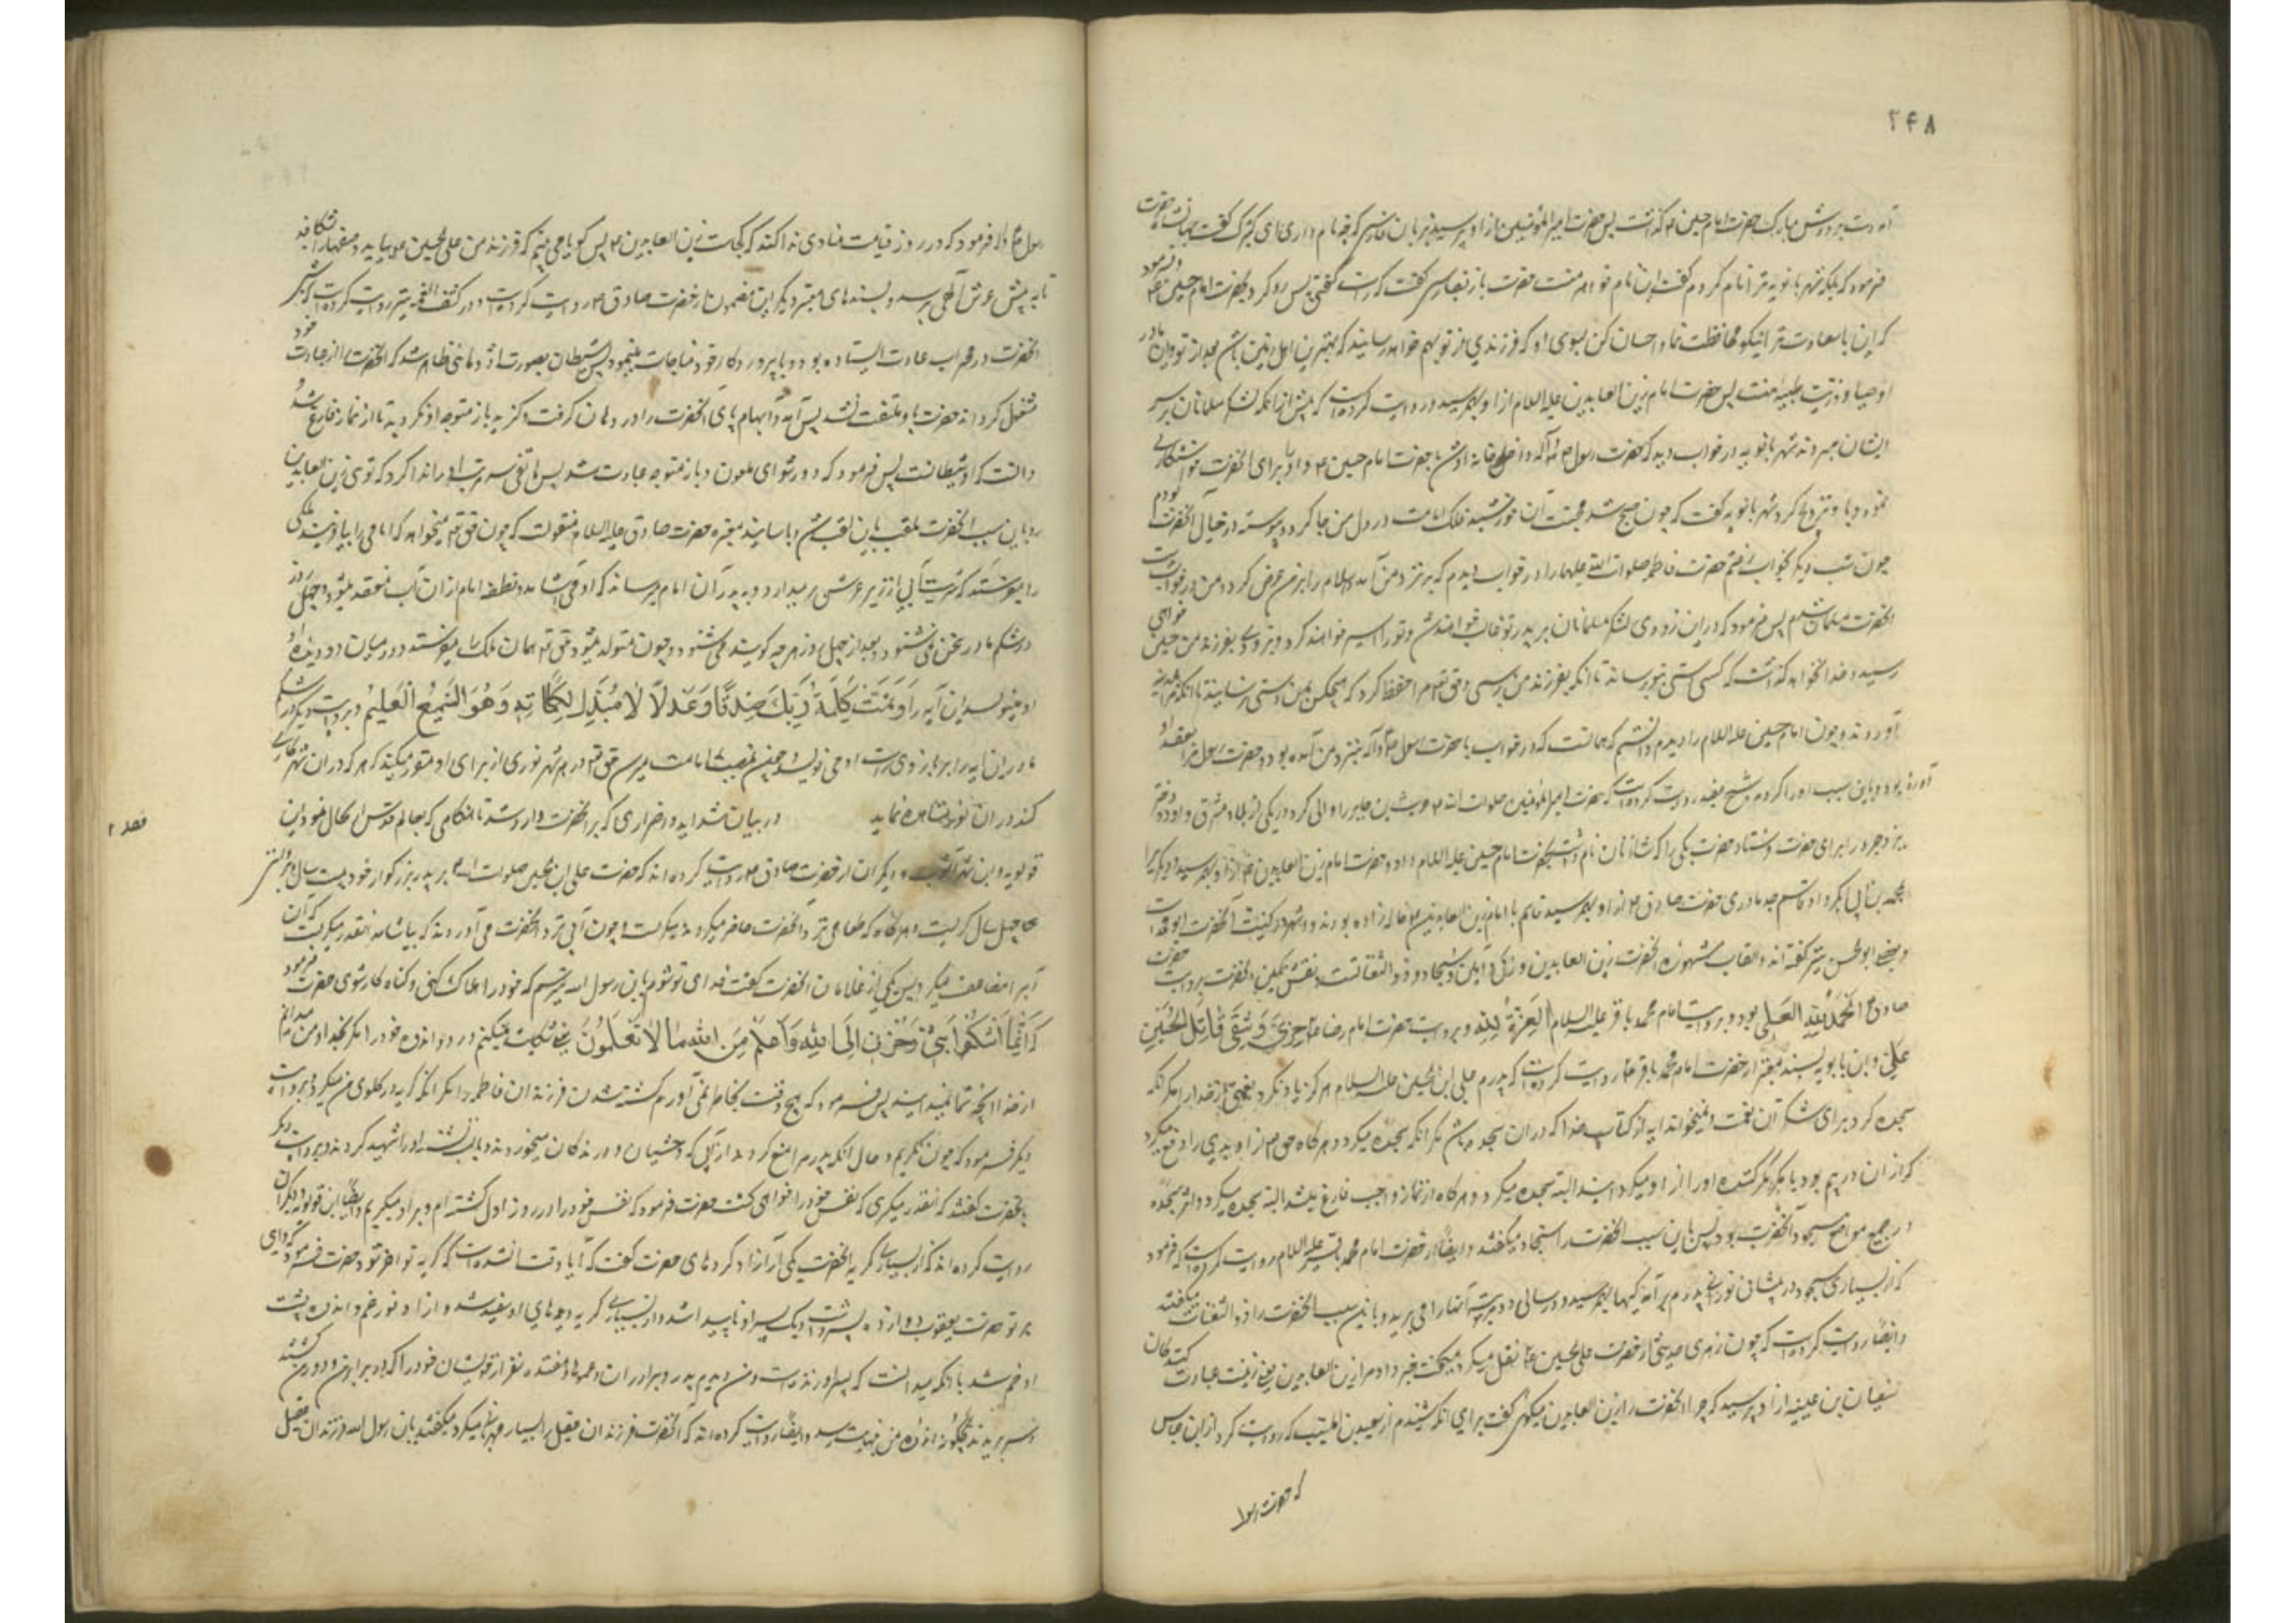 ۲۴۸
دست بر دوش مبارک حضرت امام حسین ع گذاشت پس حضرت امیر المؤمنین از او پرسید بزبان فارسی که چه نام داری ای کنیزک گفت جهانشاه حضرت
فرمود که بلکه شهربانویه ترا نام کردم گفت این نام خواهر منست حضرت باز بفارسی گفت که راست گفتی پس رو کرد بحضرت امام حسین ع و فرمود
که این باسعادت را نیکو محافظت نما و احسان کن بسوی او که فرزندی از تو بهم خواهد رسانید که بهترین اهل زمین باشد بعد از تو و این مادر
اوصیا و ذریت طیبه منست پس حضرت امام زین العابدین علیه السلام از او بهم رسید و روایت کرده است که پیش از آنکه لشکر مسلمانان بر سر
ایشان بروند شهربانویه در خواب دید که حضرت رسول ص و آله داخل خانه او شد با حضرت امام حسین ع و او را برای آنحضرت خواستگاری
نمود و با و تزویج کرد شهربانویه گفت که چون صبح شد محبت آن خورشید فلک امامت در دل من جا کرد و پیوسته در خیال آنحضرت بودم
چون شب دیگر بخواب رفتم حضرت فاطمه صلوات الله علیها را در خواب دیدم که بنزد من آمد و اسلام را بر من عرض کرد و من در خواب بدست
آنحضرت مسلمان شدم پس فرمود که در این زودی لشکر مسلمانان بر پدر تو غالب خواهند شد و تو را اسیر خواهند کرد و بزودی بفرزند من حسین خواهی
رسید و خدا نخواهد گذاشت که کسی دستی بتو برساند تا آنکه بفرزند من برسی و حق تعالی مرا حفظ کرد که هیچکس بمن دستی نرسانید تا آنکه مرا بمدینه
آوردند و چون امام حسین علیه السلام را دیدم دانستم که همانست که در خواب با حضرت رسول ص و آله بنزد من آمده بود و حضرت رسول مرا بعقد او
در آورده بود و باین سبب او را اختیار کردم و شیخ مفید روایت کرده است که حضرت امیر المؤمنین صلوات الله ع حریث بن جابر را والی کرد در یکی از بلاد مشرق و او دو دختر
یزدجرد را برای حضرت فرستاد حضرت یکی را که شاه زنان نام داشت بحضرت امام حسین علیه السلام داد و حضرت امام زین العابدین ع از او بهم رسید و دیگری را
بمحمد بن ابی بکر داد و قاسم جد مادری حضرت صادق ع از او بهم رسید پس قاسم با امام زین العابدین ع خاله زاده بودند و مشهور در کنیت آنحضرت ابو محمد است
و بعضی ابو الحسن نیز گفته اند و القاب مشهوره آنحضرت زین العابدین و زکی و امین و سجاد و ذو الثفناتست و نقش نگین آنحضرت بروایت حضرت
صادق ع الْحَمْدُ لِلّهِ الْعَلِی بود و بروایت امام محمد باقر علیه السلام الْعِزَّةُ لِلّهِ و بروایت حضرت امام رضا ع خَزِیَ وَ شَقِیَ قَاتِلُ الْحُسَیْنِ بْنِ
عَلِیٍّ و ابن بابویه بسند معتبر از حضرت امام محمد باقر ع روایت کرده است که پدرم علی ابن الحسین علیه السلام هرگز یاد نکرد نعمتی از خدا را مگر آنکه
سجده کرد برای شکر آن نعمت و نمیخواند آیه از کتاب خدا که در آن سجده باشد مگر آنکه سجده میکرد و هر گاه حق تعالی از او بدی را دفع میکرد
که از آن در بیم بود یا مکر مکر کننده را از او میگردانید البته سجده میکرد و هر گاه از نماز واجب فارغ میشد البته سجده میکرد و اثر سجده
در جمیع مواضع سجود آنحضرت بود پس باین سبب آنحضرت را سجاد میگفتند و ایضا از حضرت امام محمد باقر علیه السلام روایت کرده است که فرمود
که از بسیاری سجود در پیشانی نورانی پدرم بر آمدگیها بهم رسید و در سالی دو مرتبه آنها را می برید و باین سبب آنحضرت را ذو الثفنات میگفتند
و ایضا روایت کرده است که چون زهری حدیثی از حضرت علی بن الحسین ع نقل میکرد میگفت خبر داد مرا زین العابدین یعنی زینت عبادت کنندگان
سفیان بن عیینه از او پرسید که چرا آنحضرت را زین العابدین میگوئی گفت برای آنکه شنیدم از سعید بن المسیب که روایت کرد از ابن عباس
که حضرت رسول
رسول ص و آله فرمود که در روز قیامت منادی ندا کند که کجاست زین العابدین ع پس گویا می بینم که فرزند من علی بن الحسین ع بیاید و صفها را شکافد
تا به پیش عرش الهی برسد و بسندهای معتبر دیگر این مضمون از حضرت صادق ع روایت کرده است و در کشف الغمه نیز روایت کرده است که شبی
آنحضرت در محراب عبادت ایستاده بود و با پروردگار خود مناجات مینمود پس شیطان بصورت اژدهائی ظاهر شد که آنحضرت را از عبادت خود
مشغول گرداند حضرت باو ملتفت نشد پس آمد و ابهام پای آنحضرت را در دهان گرفت و گزید باز متوجه او نگردید تا از نماز فارغ شد
دانست که او شیطانست پس فرمود که دور شو ای ملعون و باز متوجه عبادت شد پس هاتفی سه مرتبه او را ندا کرد که توئی زین العابدین
و باین سبب آنحضرت ملقب باین لقب شد و باسانید معتبره حضرت صادق علیه السلام منقولست که چون حق تعالی میخواهد که امامی را بیافریند ملکی
را میفرستد که شربت آبی از زیر عرش بر میدارد و بپدر آن امام میرساند که او می آشامد و نطفه امام از آن آب منعقد میشود و چهل روز
در شکم مادر سخن نمی شنود و بعد از چهل روز هر چه گویند می شنود و چون متولد میشود حق تعالی همان ملک را میفرستد و در میان دو دیده او
مینویسد این آیه را وَ تَمَّتْ کَلِمَةُ رَبِّکَ صِدْقًا وَ عَدْلًا لَا مُبَدِّلَ لِکَلِمَاتِهِ وَ هُوَ السَّمِیعُ الْعَلِیمُ و بروایت دیگر در شکم
مادر این آیه را بر بازوی راست او می نویسد و چون بمنصب امامت میرسد حق تعالی در هر شهر نوری از برای او مقرر میکند که هر که در آن شهر کاری
کند در آن نور مشاهده نماید
در بیان شداید و اضراری که بر آنحضرت وارد شد تا هنگامی که بعالم قدس ارتحال نمود ابن
فصل ۲
قولویه و ابن شهرآشوب و دیگران از حضرت صادق ع روایت کرده اند که حضرت علی ابن الحسین صلوات الله بر پدر بزرگوار خود بیست سال و بروایتی
چهل سال گریست و هر گاه که طعامی نزد آنحضرت حاضر میکردند میگریست و چون آبی نزد آنحضرت می آوردند که بیاشامد آنقدر میگریست که آن
آب را مضاعف میکرد پس یکی از غلامان آنحضرت گفت فدای تو شوم یابن رسول الله میترسم که خود را هلاک کنی و گناه کار شوی حضرت فرمود
که اِنَّمَا اَشْکُوا بَثِّی وَ حُزْنِی اِلَی اللهِ وَ اَعْلَمُ مِنَ اللهِ مَا لَا تَعْلَمُونَ یعنی شکایت نمیکنم درد و اندوه خود را مگر بخدا و من میدانم
از خدا آنچه شما نمیدانید پس فرمود که هیچ وقت بخاطر نمی آورم کشته شدن فرزندان فاطمه را مگر آنکه گریه در گلوی من میگیرد و بروایت
دیگر فرمود که چون نگریم و حال آنکه پدر مرا منع کردند از آبی که وحشیان و درندگان میخوردند و با لب تشنه او را شهید کردند و بروایت دیگر
بآنحضرت گفتند که آنقدر میگریی که نفس خود را خواهی کشت حضرت فرمود که نفس خود را در روز اول کشته ام و بر او میگریم و ایضا ابن قولویه و دیگران
روایت کرده اند که از بسیاری گریه آنحضرت یکی از آزاد کرده های حضرت گفت که آیا وقت آن نشده است که گریه تو آخر شود حضرت فرمود که وای
بر تو حضرت یعقوب دوازده پسر داشت و یک پسر او ناپیدا شد و از بسیاری گریه دیدهای او سفید شد و از وفور غم و اندوه پشت
او خم شد با آنکه میدانست که پسر او زنده است و من دیدم پدر و برادران و عموها و هفده نفر از خویشان خود را که در برابر من و دور من کشتند
و سر بریدند چگونه اندوه من بنهایت رسد و ایضا روایت کرده اند که آنحضرت فرزندان عقیل را بسیار مهربانی میکرد میگفتند یابن رسول الله فرزندان عقیل